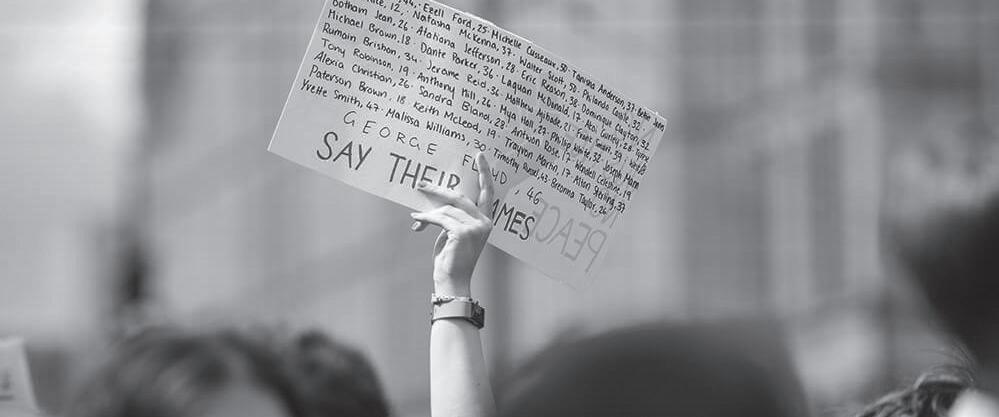 12, Ezell Ford, 25. Michelle Cusseaux, 50. Tanisha Anderson, 37.
Botham Jean, 26 Natasha McKenna, 37. Walter Scott, 50. Philando Castile, 32
Michael Brown, 18 Atatiana Jefferson, 28 Eric Reason, 38 Dominique Clayton, 32
Rumain Brisbon, 34 Dante Parker, 36 Laquan McDonald, 17
Tony Robinson, 19 Jerome Reid, 36 Matthew
Alexia Christian, 26 Anthony Hill, 26 Mya Hall, 27 Philip White, 32 Joseph Mann
Paterson Brown, 18 Sandra Bland, 28 Antwon Rose, 17 Wendell Celestine, 19
Yvette Smith, 47. Keith McLeod, 19. Trayvon Martin, 17 Alton Sterling, 37
Malissa Williams, 30. Timothy 43 Breonna Taylor, 26
GEORGE FLOYD, 46
SAY THEIR NAMES
PEACE